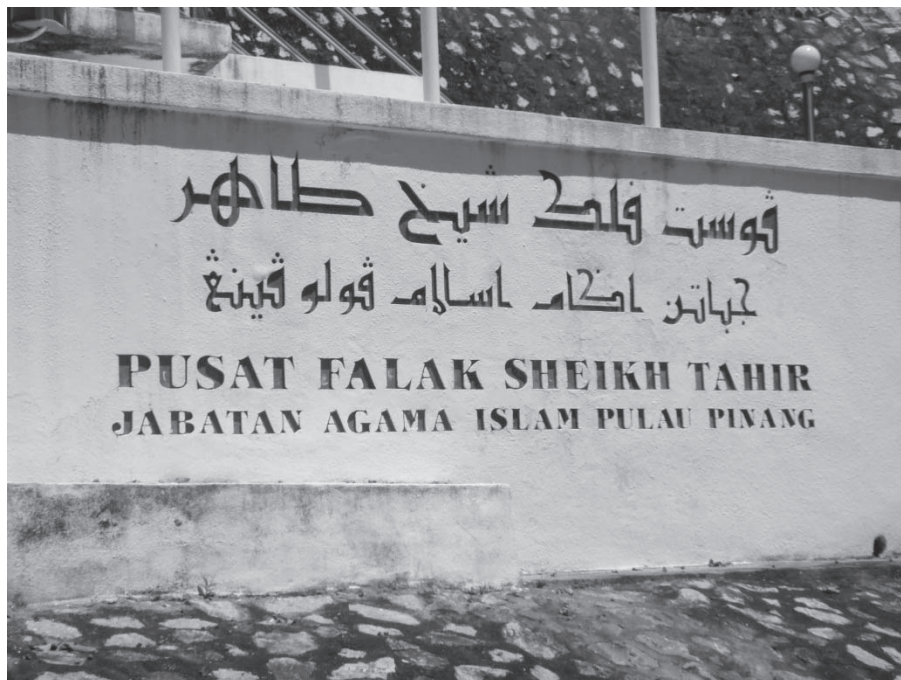 ڤوست فلک شيخ طاهر
جباتن اݢام اسلام ڤولو ڤينڠ
PUSAT FALAK SHEIKH TAHIR
JABATAN AGAMA ISLAM PULAU PINANG